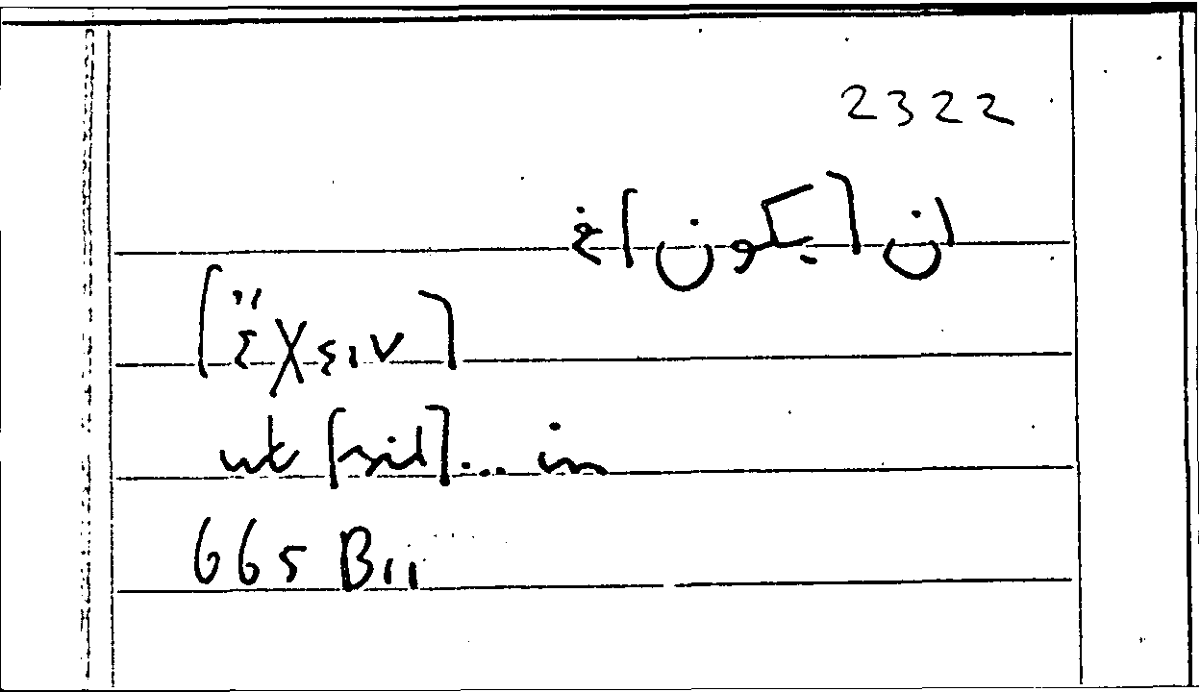 2322
ان [يكون] في
[ἔχειν]
ut [sit]... in
665 B11